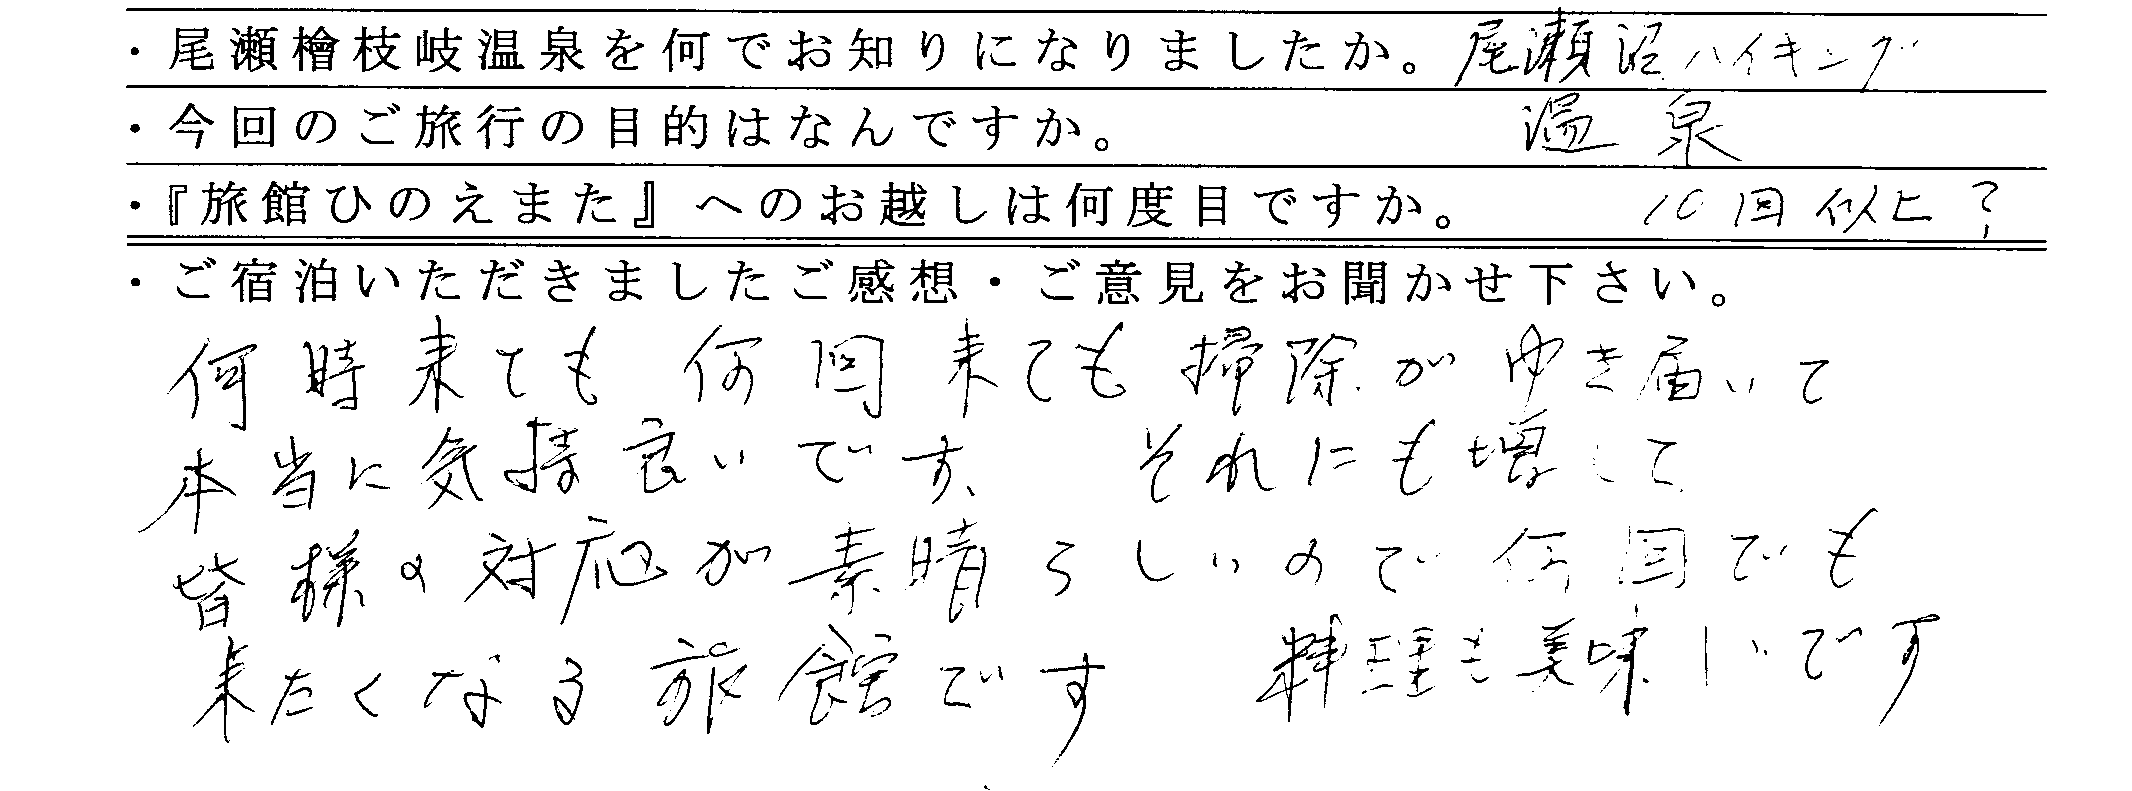 ・尾瀬檜枝岐温泉を何でお知りになりましたか。尾瀬沼ハイキング
・今回のご旅行の目的はなんですか。 温泉
・『旅館ひのえまた』へのお越しは何度目ですか。 10回似上?
・ご宿泊いただきましたご感想・ご意見をお聞かせ下さい。
何時来ても 何回来ても掃除がゆき届いて
本当に気持良いです、 それにも増して
皆様の対応が素晴らしいので何回でも
来たくなる旅館です 料理も美味しいです